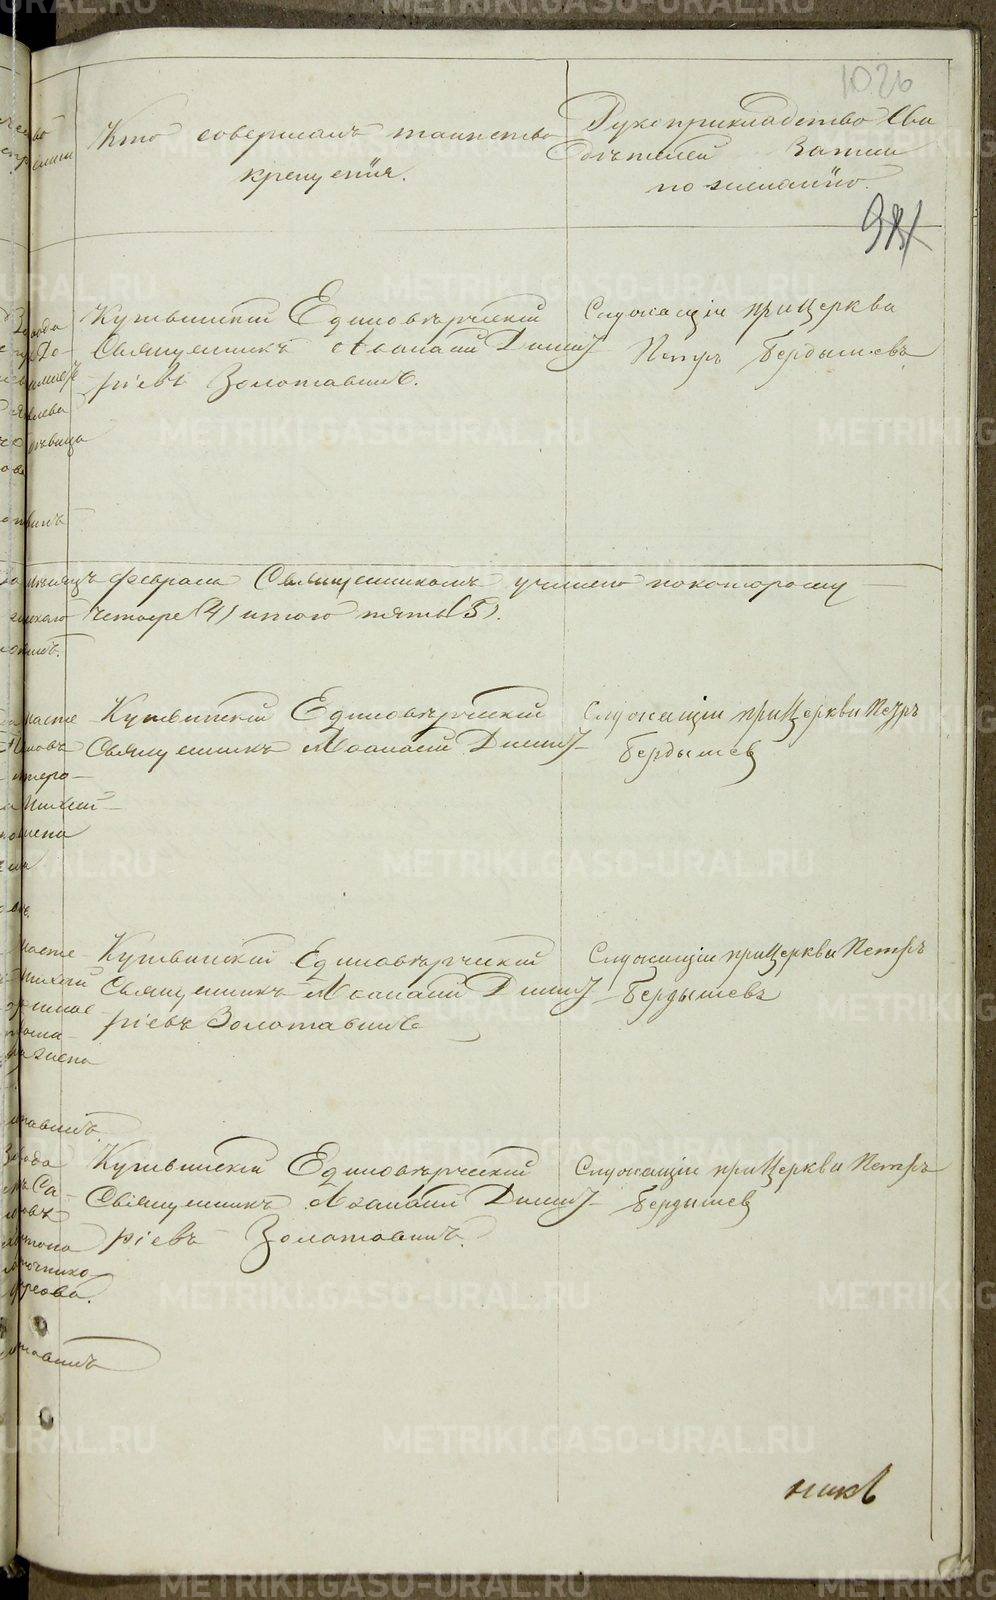 1026
Кто совершалъ таинство
крещенія.
Рукоприкладство Сви
дѣтелей записи
по желанію.
981
Кушвинскій Единовѣрческій
Священникъ Аѳанасій Димит
ріевъ Золотавинъ.
Служащій прицерква
Петръ Бердышевъ
мѣсяцъ февраль Священникомъ учинено покоторому
четверо (4) итого пять (5).
Кушвинскій Единовѣрческій
Священникъ Аѳанасій Димит
Служащій прицеркви Петръ
Бердышев
Кушвинскій Единовѣрческій
Священникъ Аѳанасій Димит
ріевъ Золотавинъ
Служащій прицеркви Петръ
Бердышевъ
Кушвинскій Единовѣрческій
Священникъ Аѳанасій Димит
ріевъ Золотавинъ.
Служащій прицеркви Петръ
Бердышев
никъ
METRIKI.GASO-URAL.RU